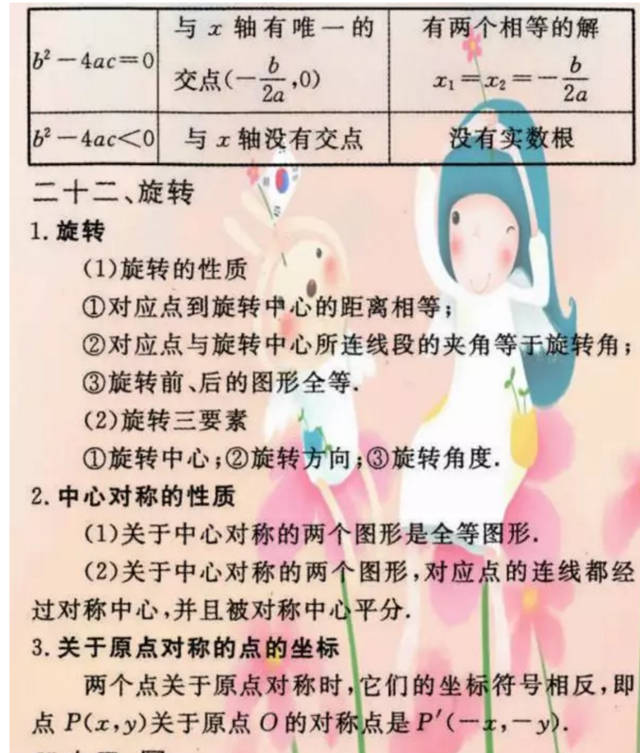 b² − 4ac = 0 与 x 轴有唯一的交点(−b/2a, 0) 有两个相等的解 x₁ = x₂ = −b/2a
b² − 4ac < 0 与 x 轴没有交点 没有实数根
二十二、旋转
1. 旋转
(1)旋转的性质
①对应点到旋转中心的距离相等;
②对应点与旋转中心所连线段的夹角等于旋转角;
③旋转前、后的图形全等.
(2)旋转三要素
①旋转中心;②旋转方向;③旋转角度.
2. 中心对称的性质
(1)关于中心对称的两个图形是全等图形.
(2)关于中心对称的两个图形,对应点的连线都经
过对称中心,并且被对称中心平分.
3. 关于原点对称的点的坐标
两个点关于原点对称时,它们的坐标符号相反,即
点 P(x,y)关于原点 O 的对称点是 P′(−x,−y).